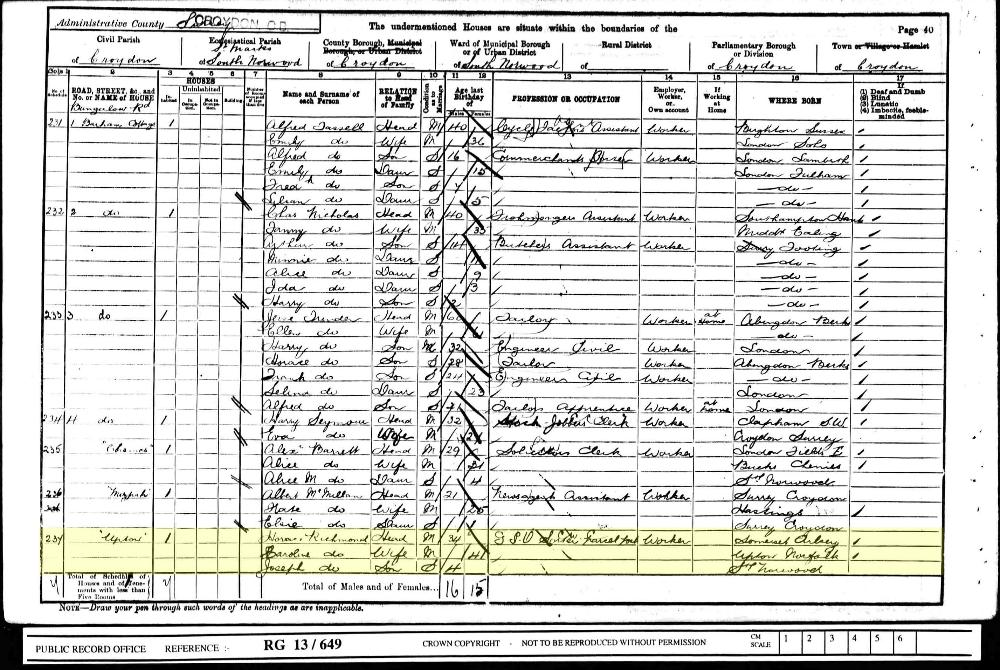 Administrative County CROYDON C.B.
The undermentioned Houses are situate within the boundaries of the
Page 40
Civil Parish
of Croydon
Ecclesiastical Parish
St Marks
of South Norwood
County Borough, Municipal Borough, or Urban District
of Croydon
Ward of Municipal Borough or of Urban District
of South Norwood
Rural District
of
Parliamentary Borough or Division
of Croydon
Town or Village or Hamlet
of Croydon
Cols. 1 2 3 4 5 6 7 8 9 10 11 12 13 14 15 16 17
ROAD, STREET, &c., and No. or NAME of HOUSE
HOUSES
Uninhabited
Building
Name and Surname of each Person
RELATION to Head of Family
Condition as to Marriage
Age last Birthday of
Males Females
PROFESSION OR OCCUPATION
Employer, Worker, or Own account
If Working at Home
WHERE BORN
If
(1) Deaf and Dumb
(2) Blind
(3) Lunatic
(4) Imbecile, feeble-minded
231 1 1 Alfred Head M 40 Cycle Assistant Worker Brighton Sussex
Emily do Wife M 36 London Soho
Alfred do Son S 16 Worker London Lambeth
Emily do Daur S 15 London Fulham
Fred do Son S — do —
Lilian do Daur S 5 — do —
232 2 do 1 Chas Nicholas Head M 40 Ironmongers Assistant Worker Southampton Hants
Fanny do Wife M 35 Middx Ealing
Arthur do Son S 14 Butchers Assistant Worker Surry Tooting
Minnie do Daur S — do —
Alice do Daur S 9 — do —
Ida do Daur S 3 — do —
Harry do Son S 2 — do —
233 3 do 1 Jesse Head M Tailor Worker at Home Abingdon Berks
Ellen do Wife M — do —
Harry do Son M 32 Engineer Civil Worker London
Horace do Son S 28 Tailor Worker Abingdon Berks
Frank do Son S 24 Engineer Worker — do —
Selina do Daur S 23 London
Alfred do Son S Tailors Apprentice Worker at home London
234 4 do 1 Harry Seymour Head M 32 Stock Jobbers Clerk Worker Clapham SW
Eva do Wife M Croydon Surrey
235 1 Alex Barrett Head M 29 Solicitors Clerk Worker London Fields E
Alice do Wife M Bucks Chenies
Alice M do Daur S 4 Sth Norwood
236 "Mizpah" 1 Albert McMullan Head M 21 Newsagent Assistant Worker Surry Croydon
Kate do Wife M Hastings
Elsie do Daur S 1 Surrey Croydon
237 "Upton" 1 Horace Richmond Head M 34 Parcel Post Worker Somerset
Caroline do Wife M 41 Upton Norfolk
Joseph do Son S 4 Sth Norwood
Total of Schedules of Houses and of Tenements with less than Five Rooms
Total of Males and of Females... 16 15
NOTE—Draw your pen through such words of the headings as are inapplicable.
PUBLIC RECORD OFFICE REFERENCE :- RG 13/649 CROWN COPYRIGHT - NOT TO BE REPRODUCED WITHOUT PERMISSION CM SCALE 1 2 3 4 5 6